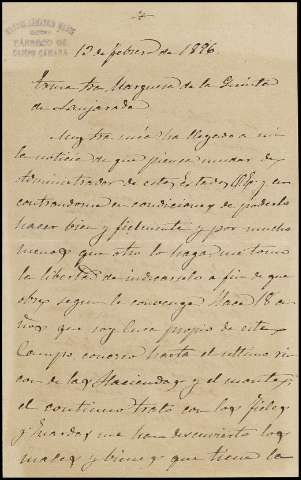 PARROCO DE
CAMPO CAMARA
13 de febrero de 1896
Ilma Sra Marquesa de la Quinta
de
Muy Sra mia ha llegado a mi
la noticia de que piensa mudar de
Administrador de estos Estados y en
contrandome en condiciones de poderlo
hacer bien y fielmente y por mucho
menos que otro lo haga me tomo
la libertad de indicarselo a fin de que
obre segun le convenga Hace 18 a
ños que soy Cura propio de este
Campo conozco hasta el ultimo rin
con de las Haciendas y el monte, y
el continuo trato con los fieles
y Guardas me han descubierto los
males y bienes que tiene la